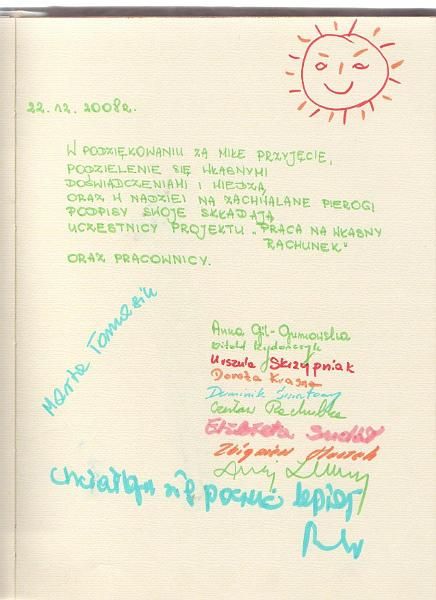 22.12.2008r.
W PODZIĘKOWANIU ZA MIŁE PRZYJĘCIE,
PODZIELENIE SIĘ WŁASNYMI
DOŚWIADCZENIAMI I WIEDZĄ,
ORAZ W NADZIEI NA ZACHWALANE PIEROGI
PODPISY SWOJE SKŁADAJĄ
UCZESTNICY PROJEKTU „PRACA NA WŁASNY
RACHUNEK”
ORAZ PRACOWNICY.
Marta Tomasik
Anna Gil-Gumowska
Witold
Urszula Skrzypniak
Dorota Krasna
Dominik
Czesław
Elżbieta
Zbigniew
chciałbym się poczuć lepiej